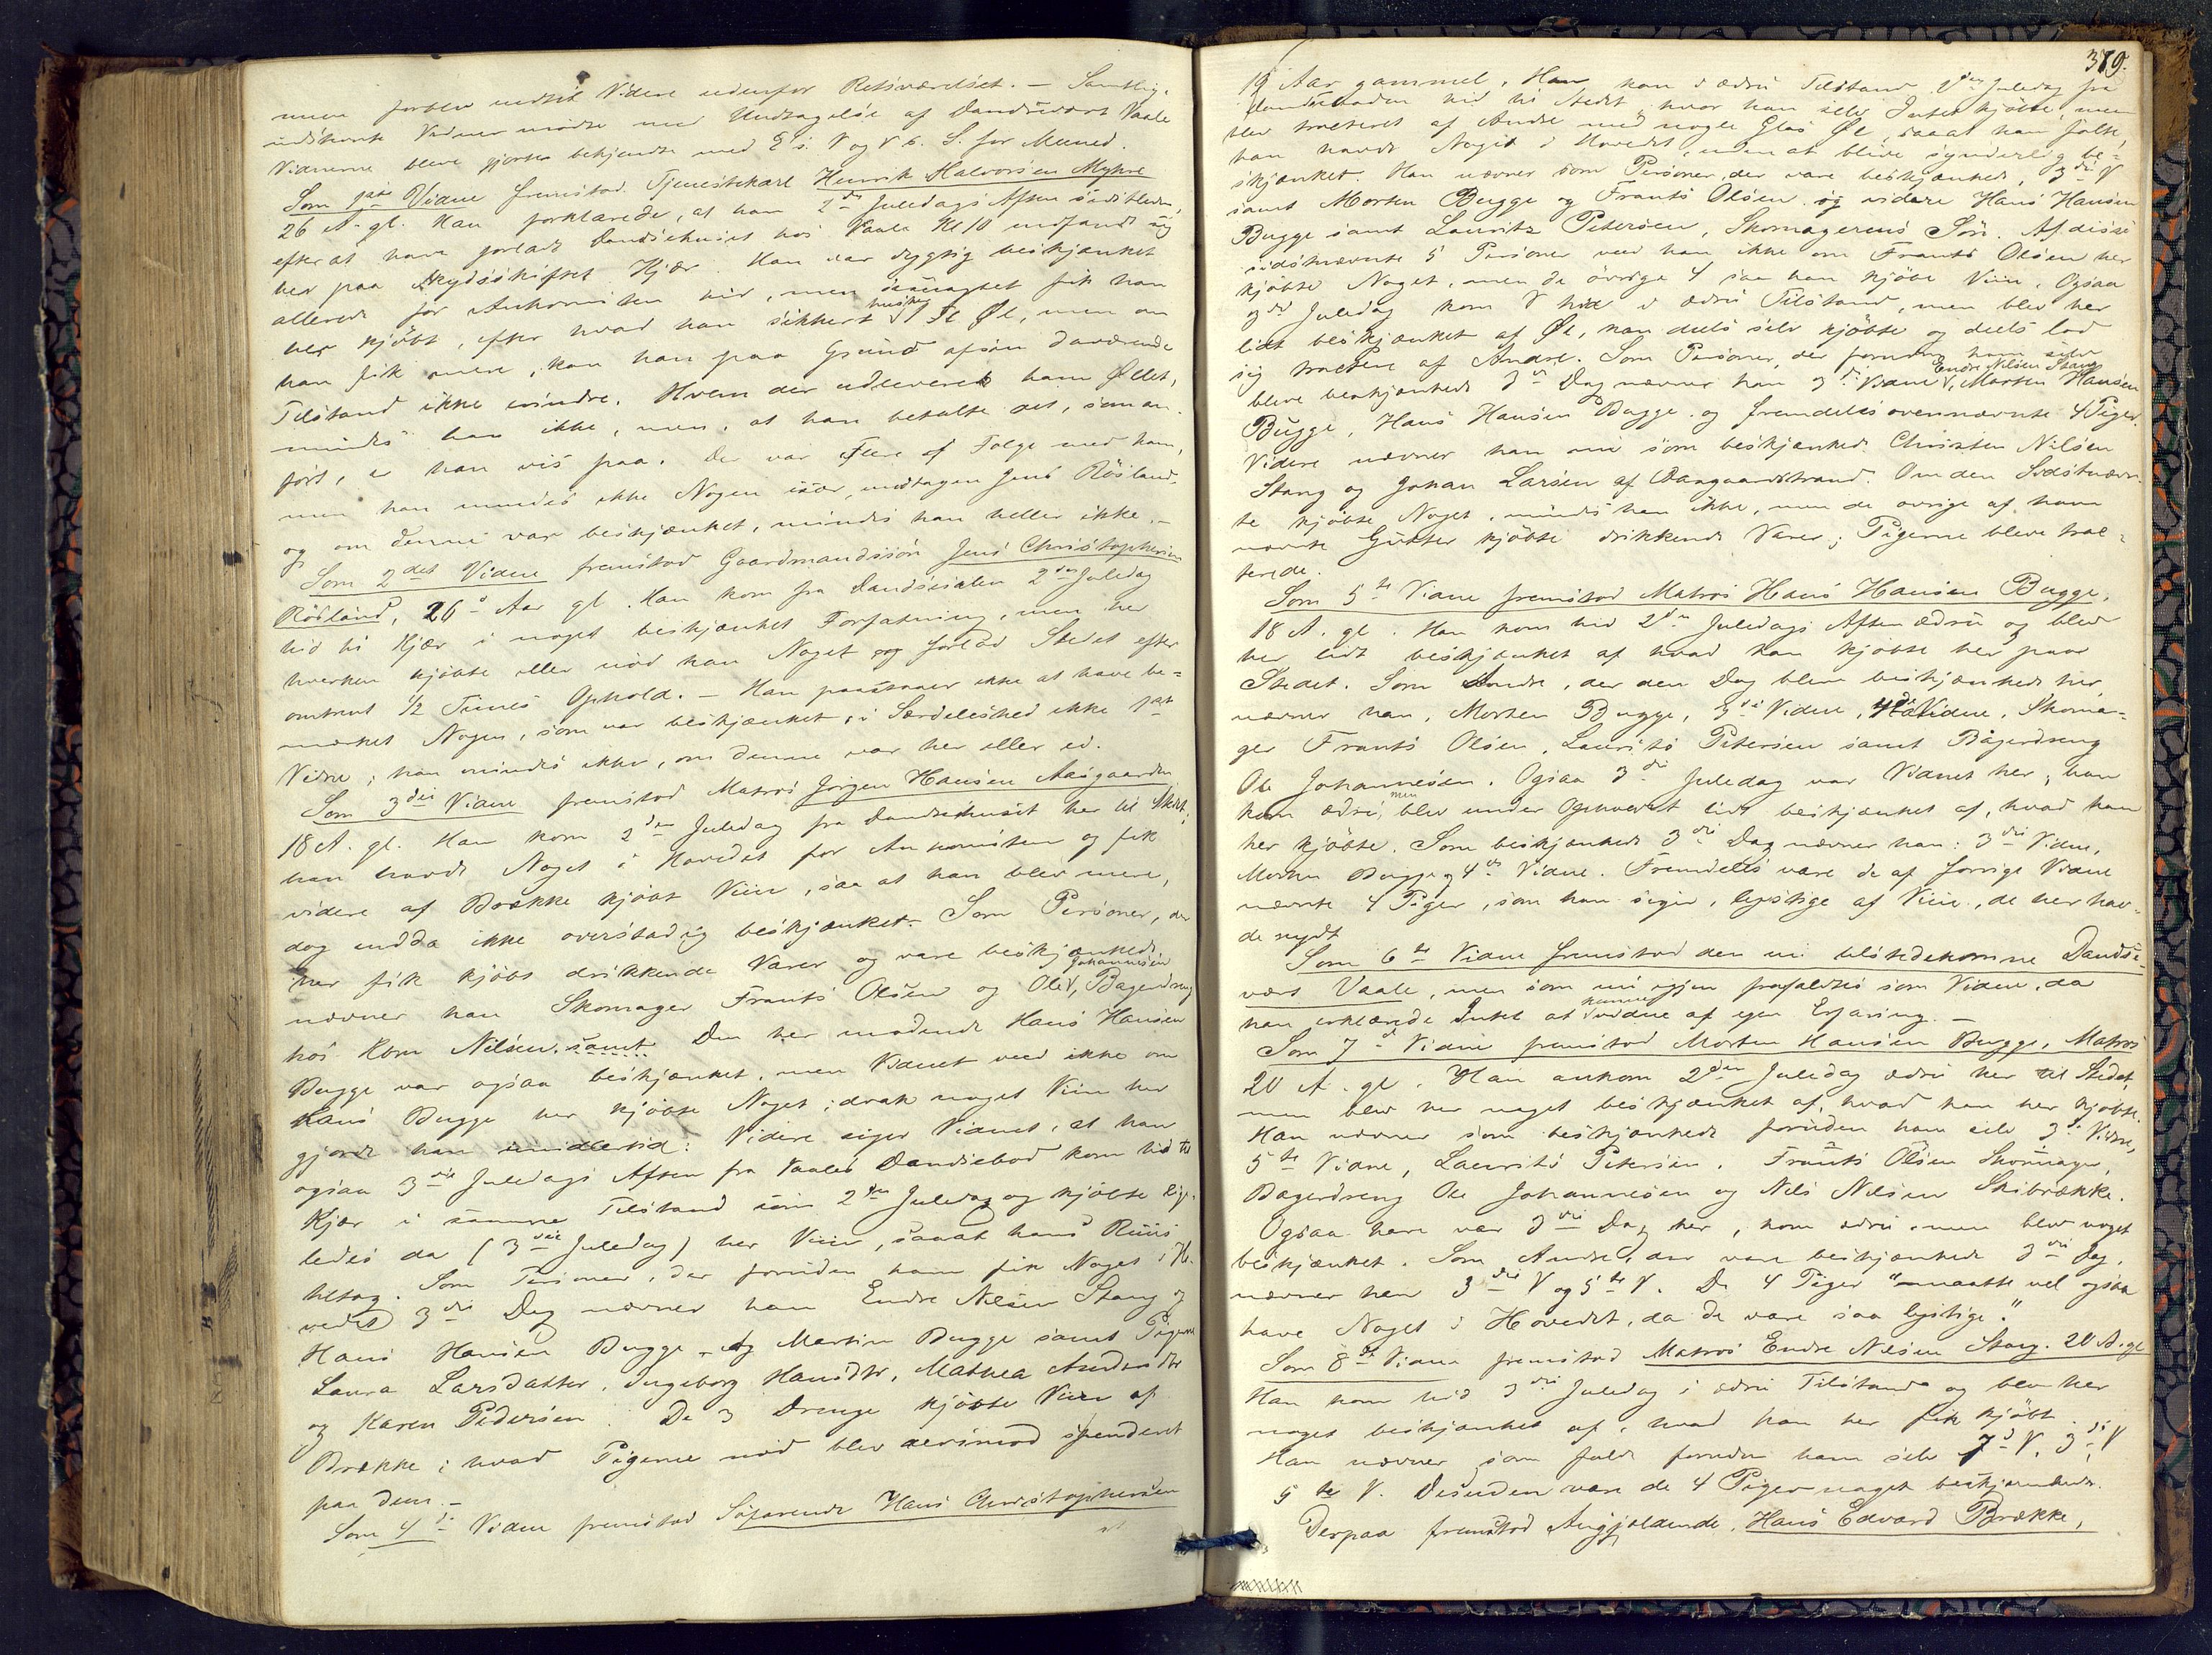 forblev indtil Videre udenfor Retsværelset. – Samtlige
indstævnte Vidner mødte med Undtagelse af Dandsevært Vaale
Vidnerne bleve gjorte bekjendte med E s. V og V 6. S. for Meened.
Som 1ste Vidne fremstod Tjenestekarl Henrik Halvorsen Myhre
26 A. gl. Han forklarede, at han 2den Juledags Aften sidstleden,
efter at have forladt Dandsehuset hos Vaale Kl 10 indfandt sig
her paa Skydsskiftet Kjær. Han var dygtig beskjænket
allerede før Ankomsten hid, men desuagtet fik han
her kjøbt, efter hvad han sikkert husker, 1 Fl Øl, men om
han fik mere, kan han paa Grund af sin daværende
Tilstand ikke erindre. Hvem der udleverede ham Øllet,
mindes han ikke, men, at han betalte det, som an-
ført, er han vis paa. Der var Flere af Følge med ham,
men han mindes ikke Nogen især, undtagen Jens Rösland,
og om denne var beskjænket, mindes han heller ikke. –
Som 2det Vidne fremstod Gaardmandssøn Jens Christophersen
Rösland, 26 Aar gl. Han kom fra Dandsesalen 2den Juledag
hid til Kjær i noget beskjænket Forfatning, men her
hverken kjøbte eller nød han Noget og forlod Stedet efter
omtrent 1/2 Times Ophold. – Han paastaaer ikke at have be-
mærket Nogen, som var beskjænket, i Særdeleshed ikke 1ste
Vidne; han mindes ikke, om denne var her eller ei.
Som 3die Vidne fremstod Matros Jörgen Hansen Aasgaarden
18 A. gl. Han kom 2den Juledag fra Dandsehuset her til Skiftet;
han havde Noget i Hovedet før Ankomsten og fik
videre af Brække kjøbt Viin, saa at han blev mere,
dog endda ikke overstadig beskjænket. Som Personer, der
her fik kjøbt drikkende Varer og vare beskjænkede,
nævner han Skomager Frants Olsen og Ole Johannesen, Bagerdreng
hos Korn Nilsen, samt Den her mødende Hans Hansen
Bugge var ogsaa beskjænket, men Vidnet veed ikke om
Hans Bugge her kjøbte Noget; drak noget Viin her
gjorde han imidlertid. Videre siger Vidnet, at han
ogsaa 3die Juledags Aften fra Vaales Dandsebod kom hid til
Kjær i samme Tilstand som 2den Juledag og kjøbte lige-
ledes da (3die Juledag) her Viin, saaat hans Ruus
tiltog. Som Personer, der foruden ham fik Noget i Ho-
vedet 3die Dag nævner han Endre Nilsen Stang og
Hans Hansen Bugge, og Martin Bugge samt Pigerne
Laura Larsdatter, Ingeborg Hansdtr, Mathea Andersdtr
og Karen Pedersen. De 3 Drenge kjøbte Viin af
Brække; hvad Pigerne nød blev derimod spenderet
paa dem. –
Som 4de Vidne fremstod Søfarende Hans Christophersen
379.
19 Aar gammel. Han kom i ædru Tilstand 2den Juledag fra
Dandseboden hid til Stedet, hvor han selv Intet kjøbte, men
blev tracteret af Andre med nogle Glas Øl, saaat han følte,
han havde Noget i Hovedet, uden at blive synderlig be-
skjænket. Han nævner som Personer, der vare beskjænkede, 3die V
samt Morten Bugge og Frants Olsen og videre Hans Hansen
Bugge samt Lauritz Petersen, Skomagerens Søn. Af disse
sidstnævnte 5 Personer veed han ikke om Frants Olsen her
kjøbte Noget, men de øvrige 4 saa han kjøbe Viin. Ogsaa
3die Juledag kom V hid i ædru Tilstand, men blev her
lidt beskjænket af Øl, han deels selv kjøbte og deels lod
sig tractere af Andre. Som Personer, der foruden ham selv
bleve beskjænkede 3die Dag nævner han 3die Vidne, Endre Nilsen Stang, Morten Hansen
Bugge, Hans Hansen Bugge, og fremdeles ovennævnte 4 Piger.
Videre nævner han nu som beskjænkede Christen Nilsen
Stang og Johan Larsen af Aasgaardstrand. Om den Sidstnævn-
te kjøbte Noget, mindes han ikke, men de øvrige af ham
nævnte Gutter kjøbte drikkende Varer; Pigerne bleve trac-
terede.
Som 5te Vidne fremstod Matros Hans Hansen Bugge,
18 A. gl. Han kom hid 2den Juledags Aften ædru og blev
her lidt beskjænket af hvad han kjøbte her paa
Stedet. Som Andre, der den Dag bleve beskjænkede her
nævner han, Morten Bugge, 3die Vidne, 4de Vidne, Skoma-
ger Frants Olsen, Laurits Petersen samt Bagerdreng
Ole Johannesen. Ogsaa 3die Juledag var Vidnet her, han
kom ædru, men blev under Opholdet lidt beskjænket af, hvad han
her kjøbte. Som beskjænkede 3die Dag nævner han: 3die Vidne,
Morten Bugge og 4de Vidne. Fremdeles vare de af forrige Vidne
nævnte 4 Piger, som han siger, lystige af Viin, de her hav-
de nydt
Som 6te Vidne fremstod den nu tilstedekomne Dandse-
vært Vaale, men som nu igjen frafaldtes som Vidne, da
han erklærede Intet at kunne vidne af egen Erfaring. –
Som 7de Vidne fremstod Morten Hansen Bugge, Matros
20 A. gl. Han ankom 2den Juledag ædru her til Stedet,
men blev her noget beskjænket af, hvad han her kjøbte.
Han nævner som beskjænkede foruden ham selv 3die Vidne,
5te Vidne, Laurits Petersen, Frants Olsen Skomager,
Bagerdreng Ole Johannesen og Nils Nilsen Skibrække.
Ogsaa han var 3die Dag her, kom ædru, men blev noget
beskjænket. Som Andre, der vare beskjænkede 3die Dag,
nævner han 3die V og 5te V. De 4 Piger "maatte vel ogsaa
have Noget i Hovedet, da de vare saa lystige."
Som 8de Vidne fremstod Matros Endre Nilsen Stang. 20 A. gl
Han kom hid 3die Juledag i ædru Tilstand og blev her
noget beskjænket af, hvad han her fik kjøbt.
Han nævner som fulde foruden ham selv 7de V, 3die V
5te V. Desuden vare de 4 Piger noget beskjænkede.
Derpaa fremstod Angjeldende, Hans Edvard Brække,